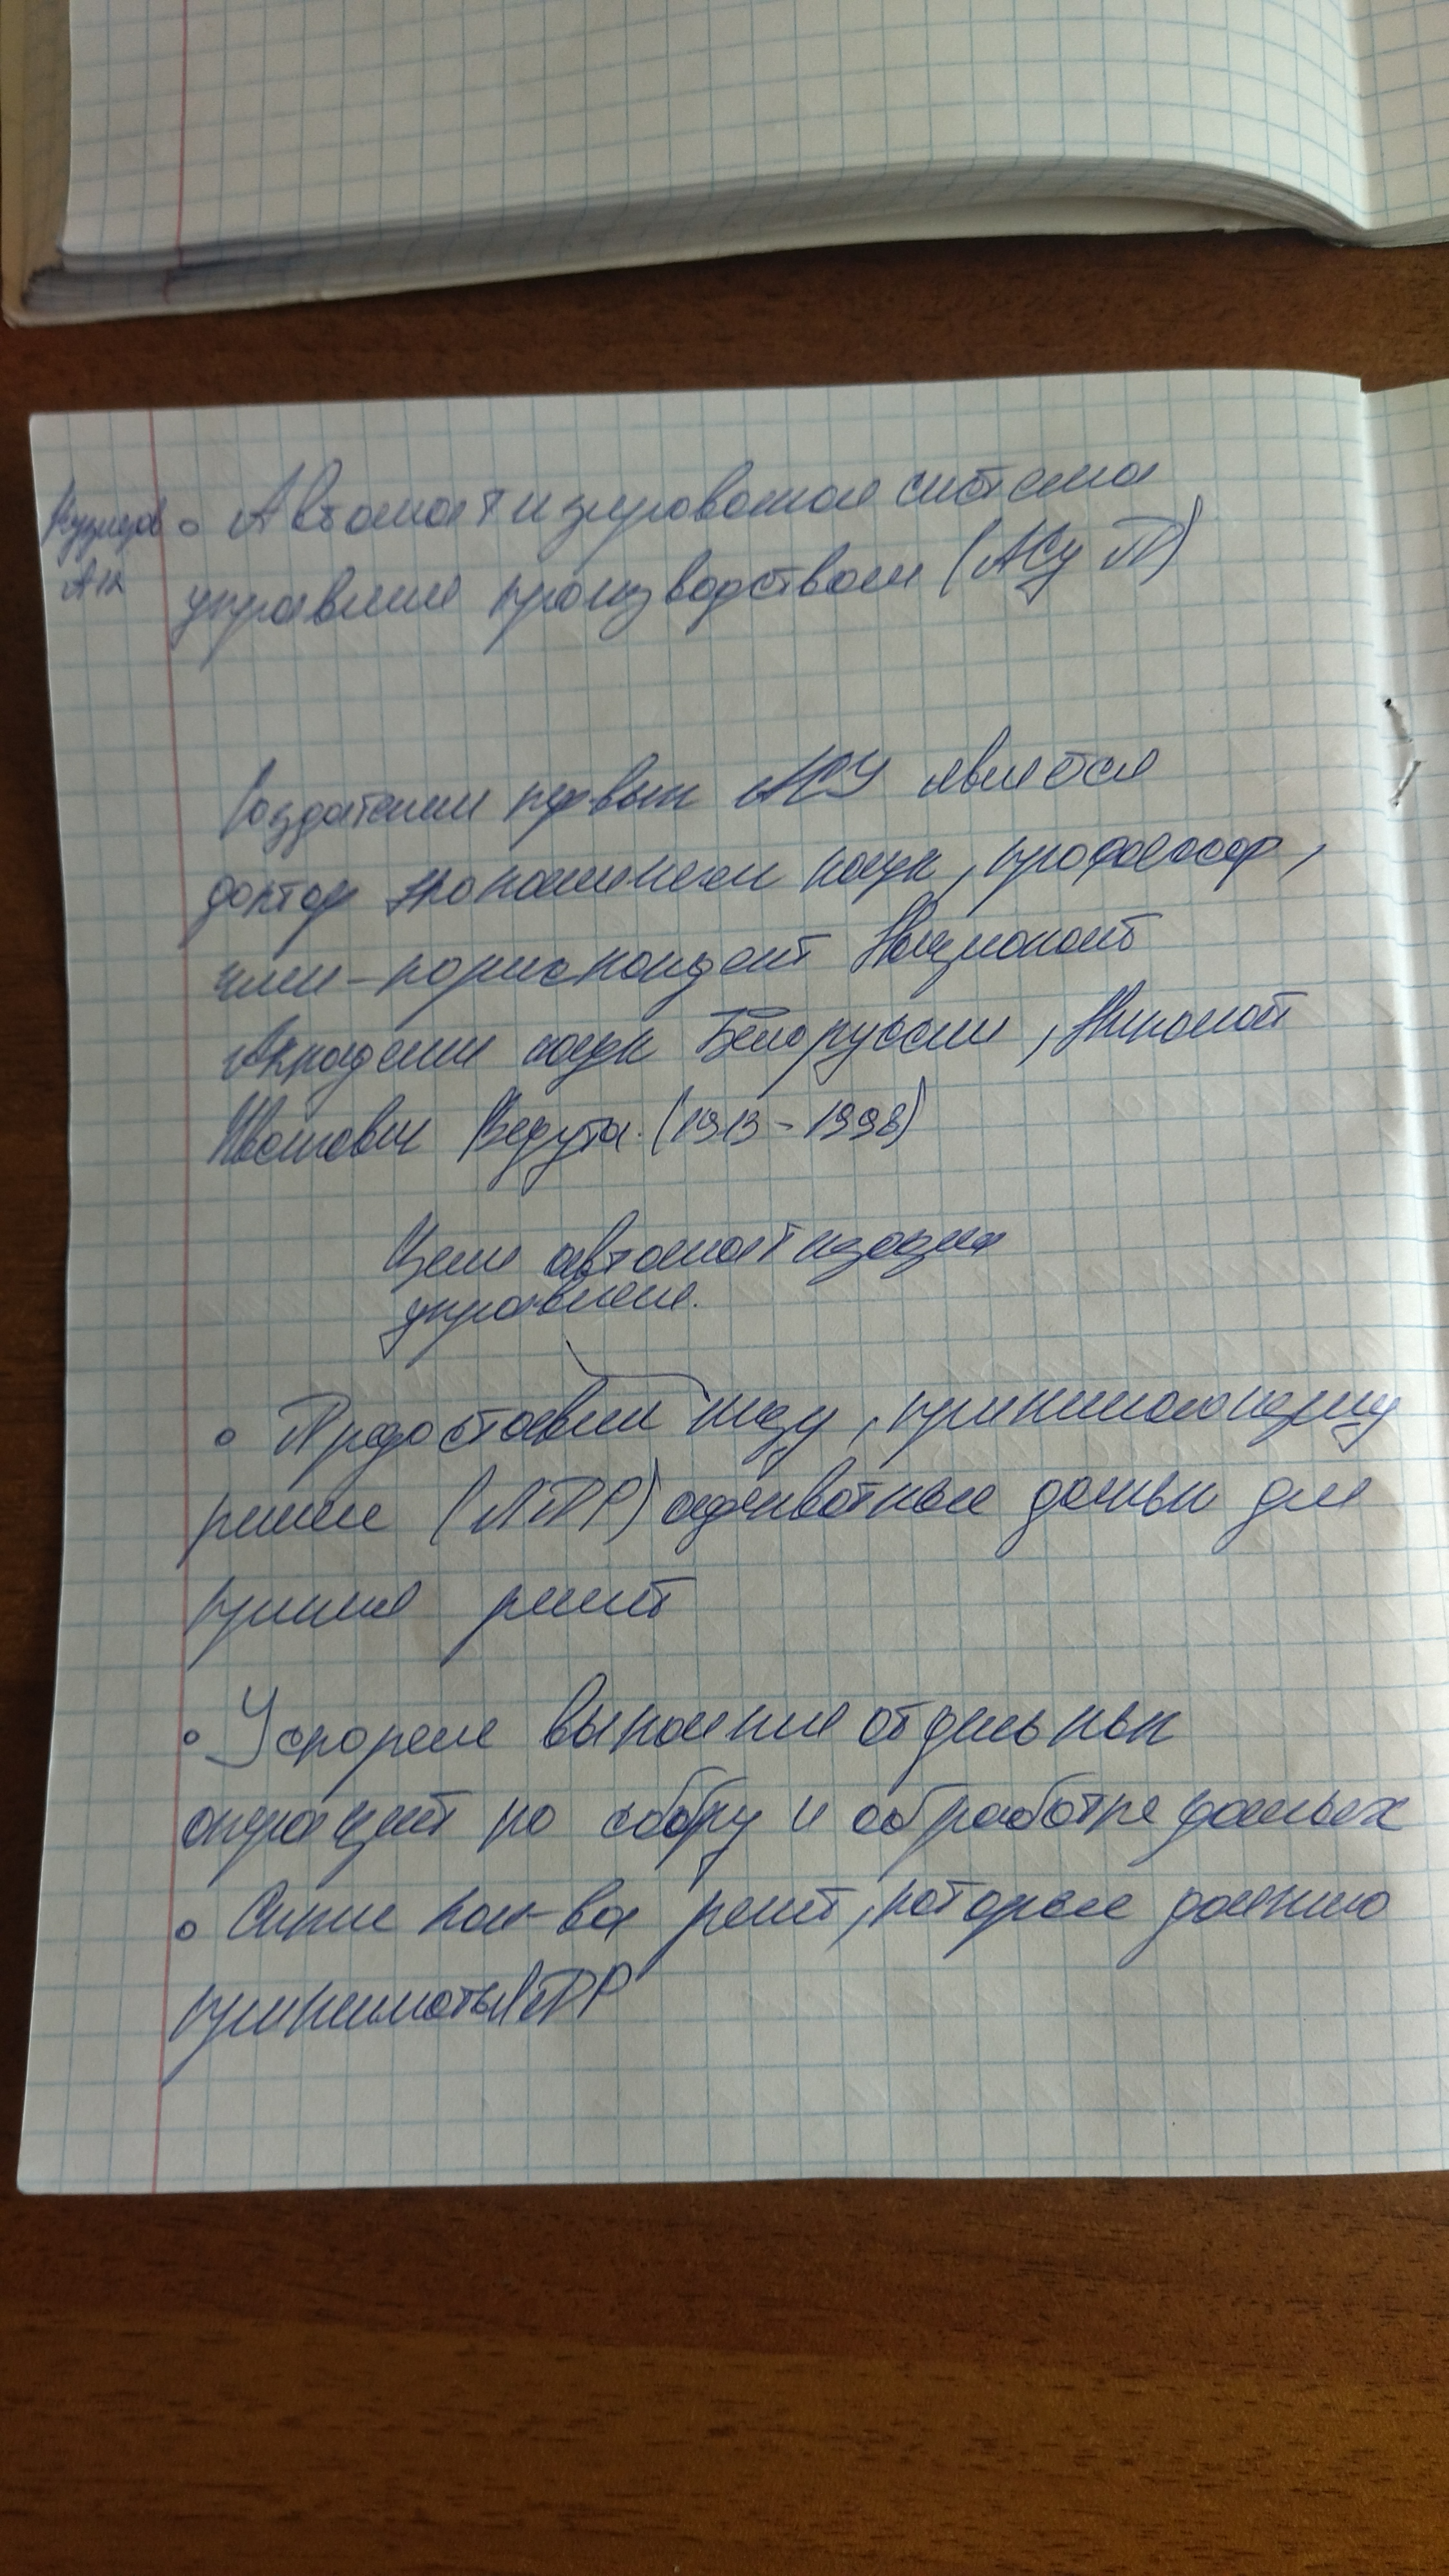 Кузнецов
А.К
• Автоматизированая система
управление производством (АСУ П)
Создателем первых АСУ является
доктор экономических наук, профессор,
член-кореспондент Национальной
Академии наук Белоруссии, Николай
Иванович Ведута. (1913-1998)
Цели автоматизации
управления.
• Предоставлен лицу, принимающему
решение (ЛПР) адекватные данных для
принятие решений
• Ускорение выполнение отдельных
операций по сбору и обработке данных
• Снижение кол-ва решений, которые должно
принимать ЛПР